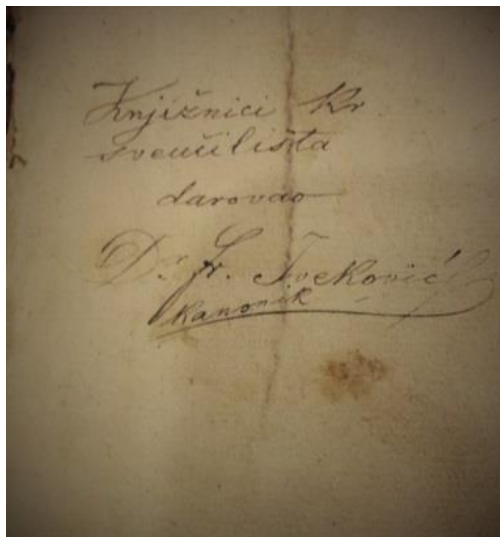 Knjižnici Kr.
sveučilišta
darovao
Dr. Fr. Iveković
kanonik